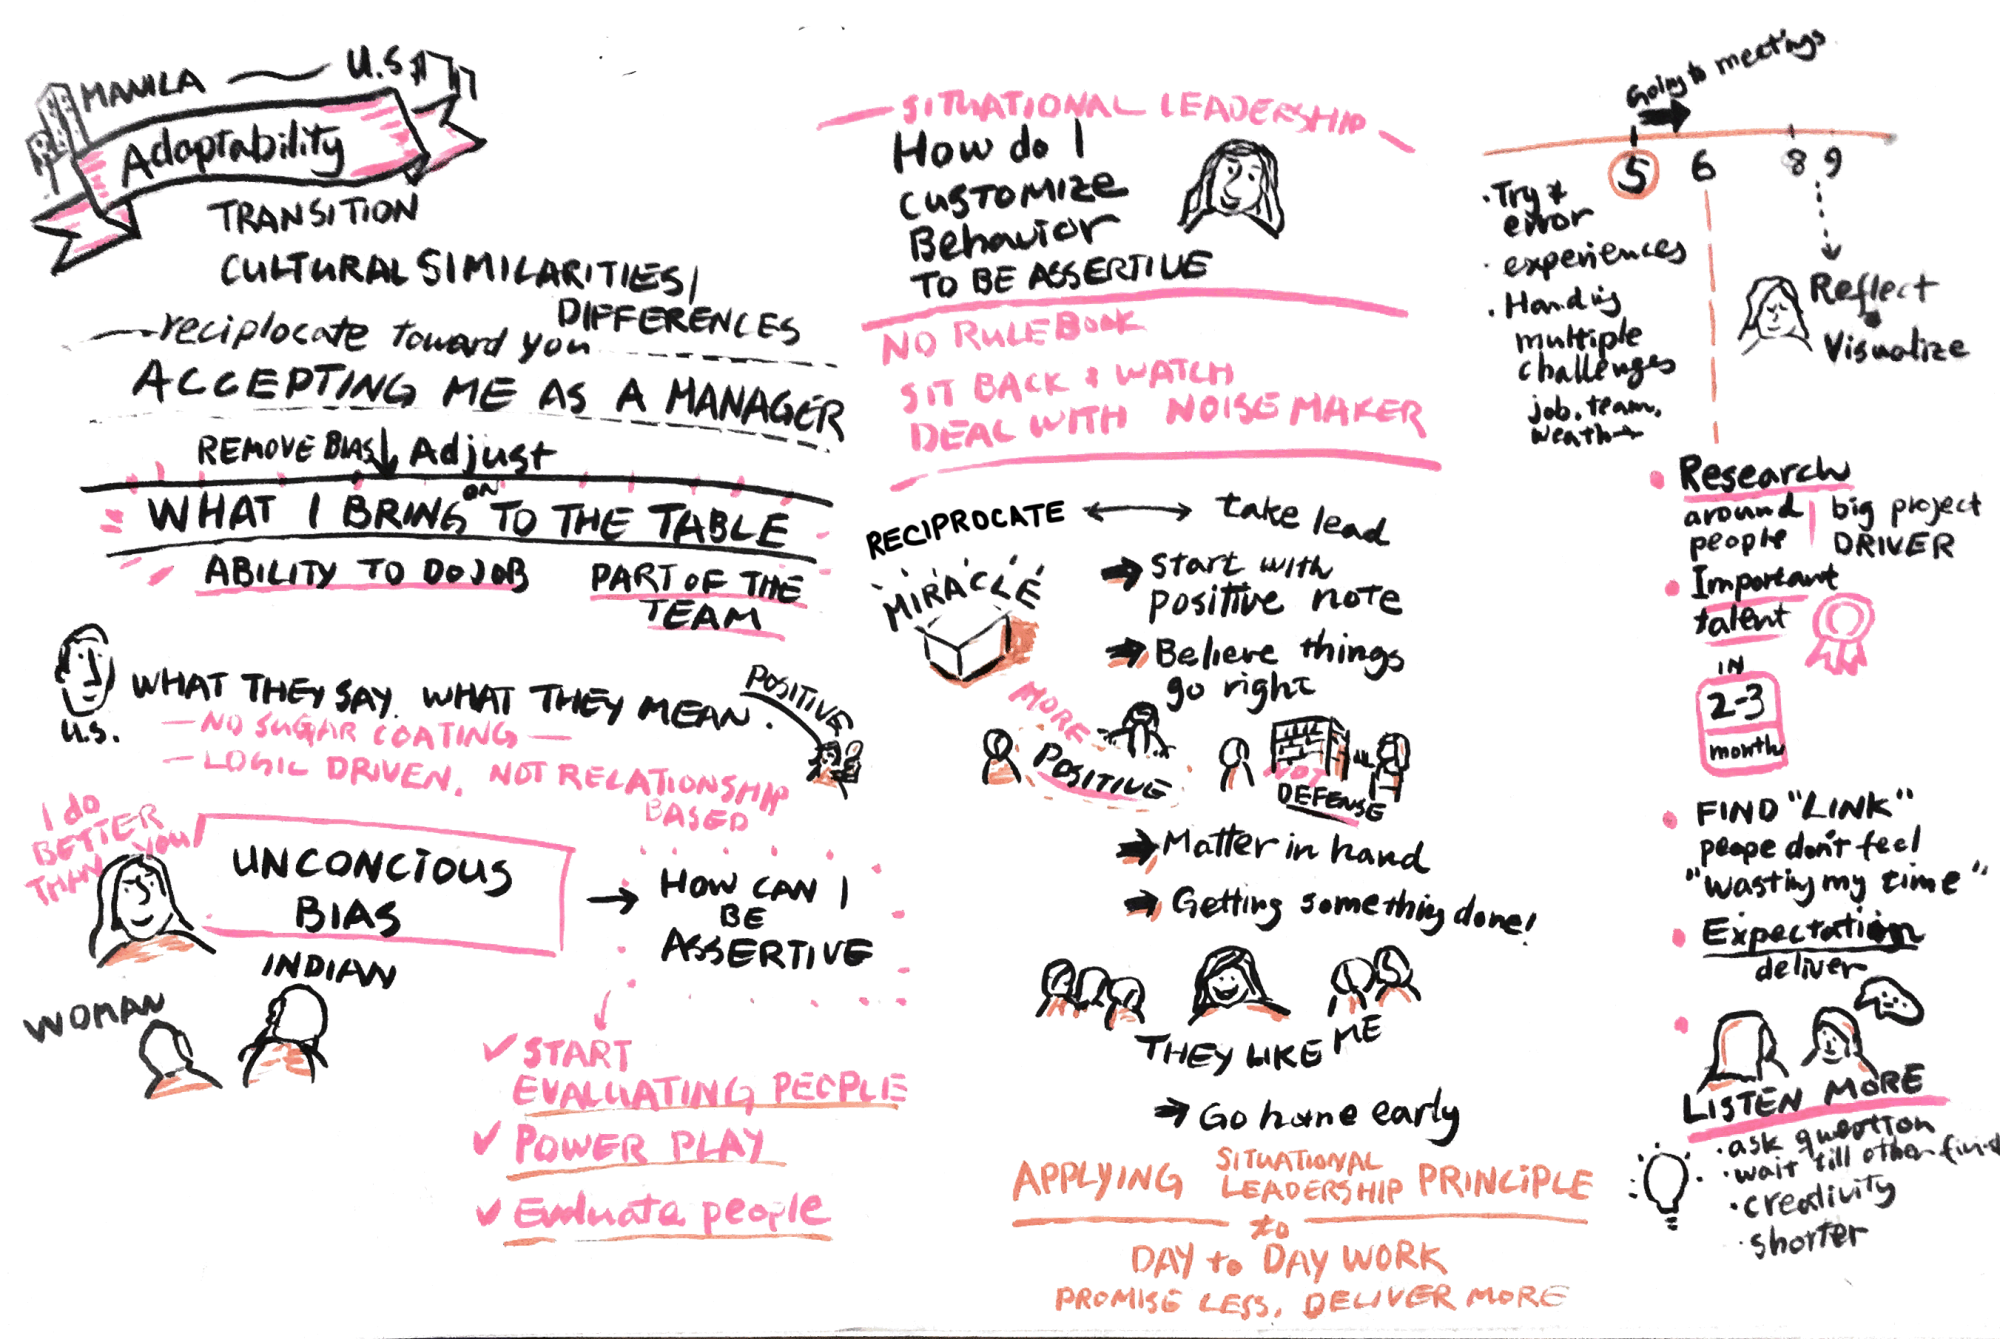 MANILA — U.S.
Adaptability
TRANSITION
CULTURAL SIMILARITIES/
DIFFERENCES
reciplocate toward you
ACCEPTING ME AS A MANAGER
REMOVE BIAS Adjust
WHAT I BRING ON TO THE TABLE
ABILITY TO DO JOB
PART OF THE
TEAM
U.S.
WHAT THEY SAY. WHAT THEY MEAN.
POSITIVE
— NO SUGAR COATING —
— LOGIC DRIVEN, NOT RELATIONSHIP
BASED
I do
BETTER
THAN YOU
UNCONCIOUS
BIAS
INDIAN
WOMAN
HOW CAN I
BE
ASSERTIVE
START
EVALUATING PEOPLE
POWER PLAY
Evaluate people
SITUATIONAL LEADERSHIP
How do I
CUSTOMIZE
Behavior
TO BE ASSERTIVE
NO RULE BOOK
SIT BACK & WATCH
DEAL WITH NOISE MAKER
RECIPROCATE
take lead
MIRACLE
Start with
positive note
Believe things
go right
MORE
POSITIVE
NOT
DEFENSE
Matter in hand
Getting something done!
THEY LIKE ME
Go home early
APPLYING SITUATIONAL
LEADERSHIP PRINCIPLE
to
DAY to DAY WORK
PROMISE LESS, DELIVER MORE
Going to meetings
5 6 8 9
· Try &
error
· experiences
· Handig
multiple
challenges
job, team,
Reflect
Visualize
Research
around
people
big project
DRIVER
Important
talent
IN
2-3
month
FIND "LINK"
peope don't feel
"wasting my time"
Expectation
deliver
LISTEN MORE
· ask question
· wait till other finish
· creativity
· shorter